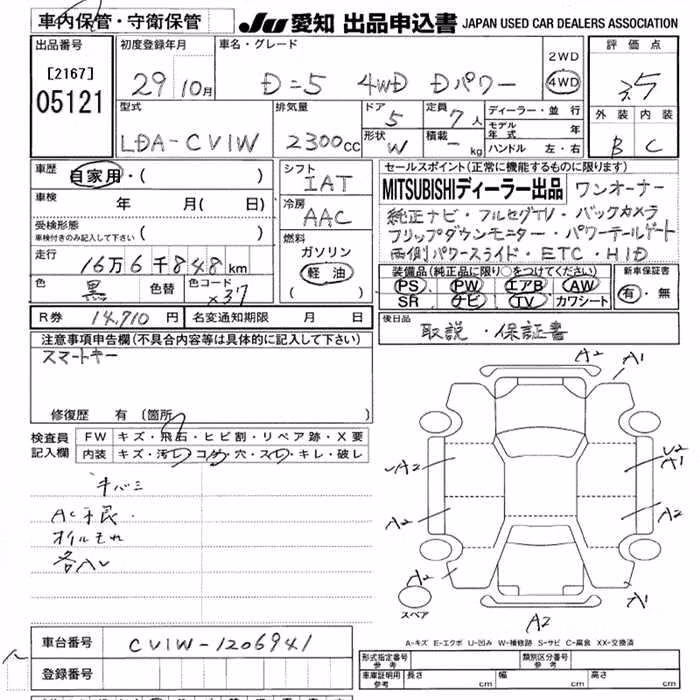 車内保管・守衛保管
JU 愛知 出品申込書 JAPAN USED CAR DEALERS ASSOCIATION
出品番号
[2167]
05121
初度登録年月
29 10月
車名・グレード
D=5 4WD Dパワー
2WD
4WD
評価点
3.5
外装 内装
B C
型式
LDA-CV1W
排気量
2300cc
ドア
5
形状
W
定員
7人
積載
- kg
ディーラー・並行
モデル年式 年
ハンドル 左・右
車歴
自家用・( )
車検 年 月( 日)
受検形態
車検付きのみ記入して下さい ( )
走行
16万6千848km
色 黒 色替 色コード X37
シフト
IAT
冷房
AAC
燃料
ガソリン
軽油
( )
セールスポイント(正常に機能するものに限ります)
MITSUBISHIディーラー出品 ワンオーナー
純正ナビ・フルセグTV・バックカメラ
フリップダウンモニター・パワーテールゲート
両側パワースライド・ETC・HID
装備品(純正品に限り○をつけてください)
PS PW エアB AW
SR ナビ TV カワシート
新車保証書
有・無
R券 14,710円 名変通知期限 月 日
後日品
取説・保証書
注意事項申告欄(不具合内容等は具体的に記入して下さい)
スマートキー
修復歴 有(箇所 )
検査員
記入欄
FW キズ・飛石・ヒビ割・リペア跡・X要
内装 キズ・汚レ・コゲ・穴・スレ・キレ・破レ
キバミ
オイルモレ
A2 A1
A2
U2
A1
A2 A2
A2
スペア
A2
A1
A-キズ E-エクボ U-凹み W-補修跡 S-サビ C-腐食 XX-交換済
車台番号 CV1W-1206941
登録番号
形式指定番号 参考
類別区分番号 参考
車庫証明用 参考
長さ cm
幅 cm
高さ cm